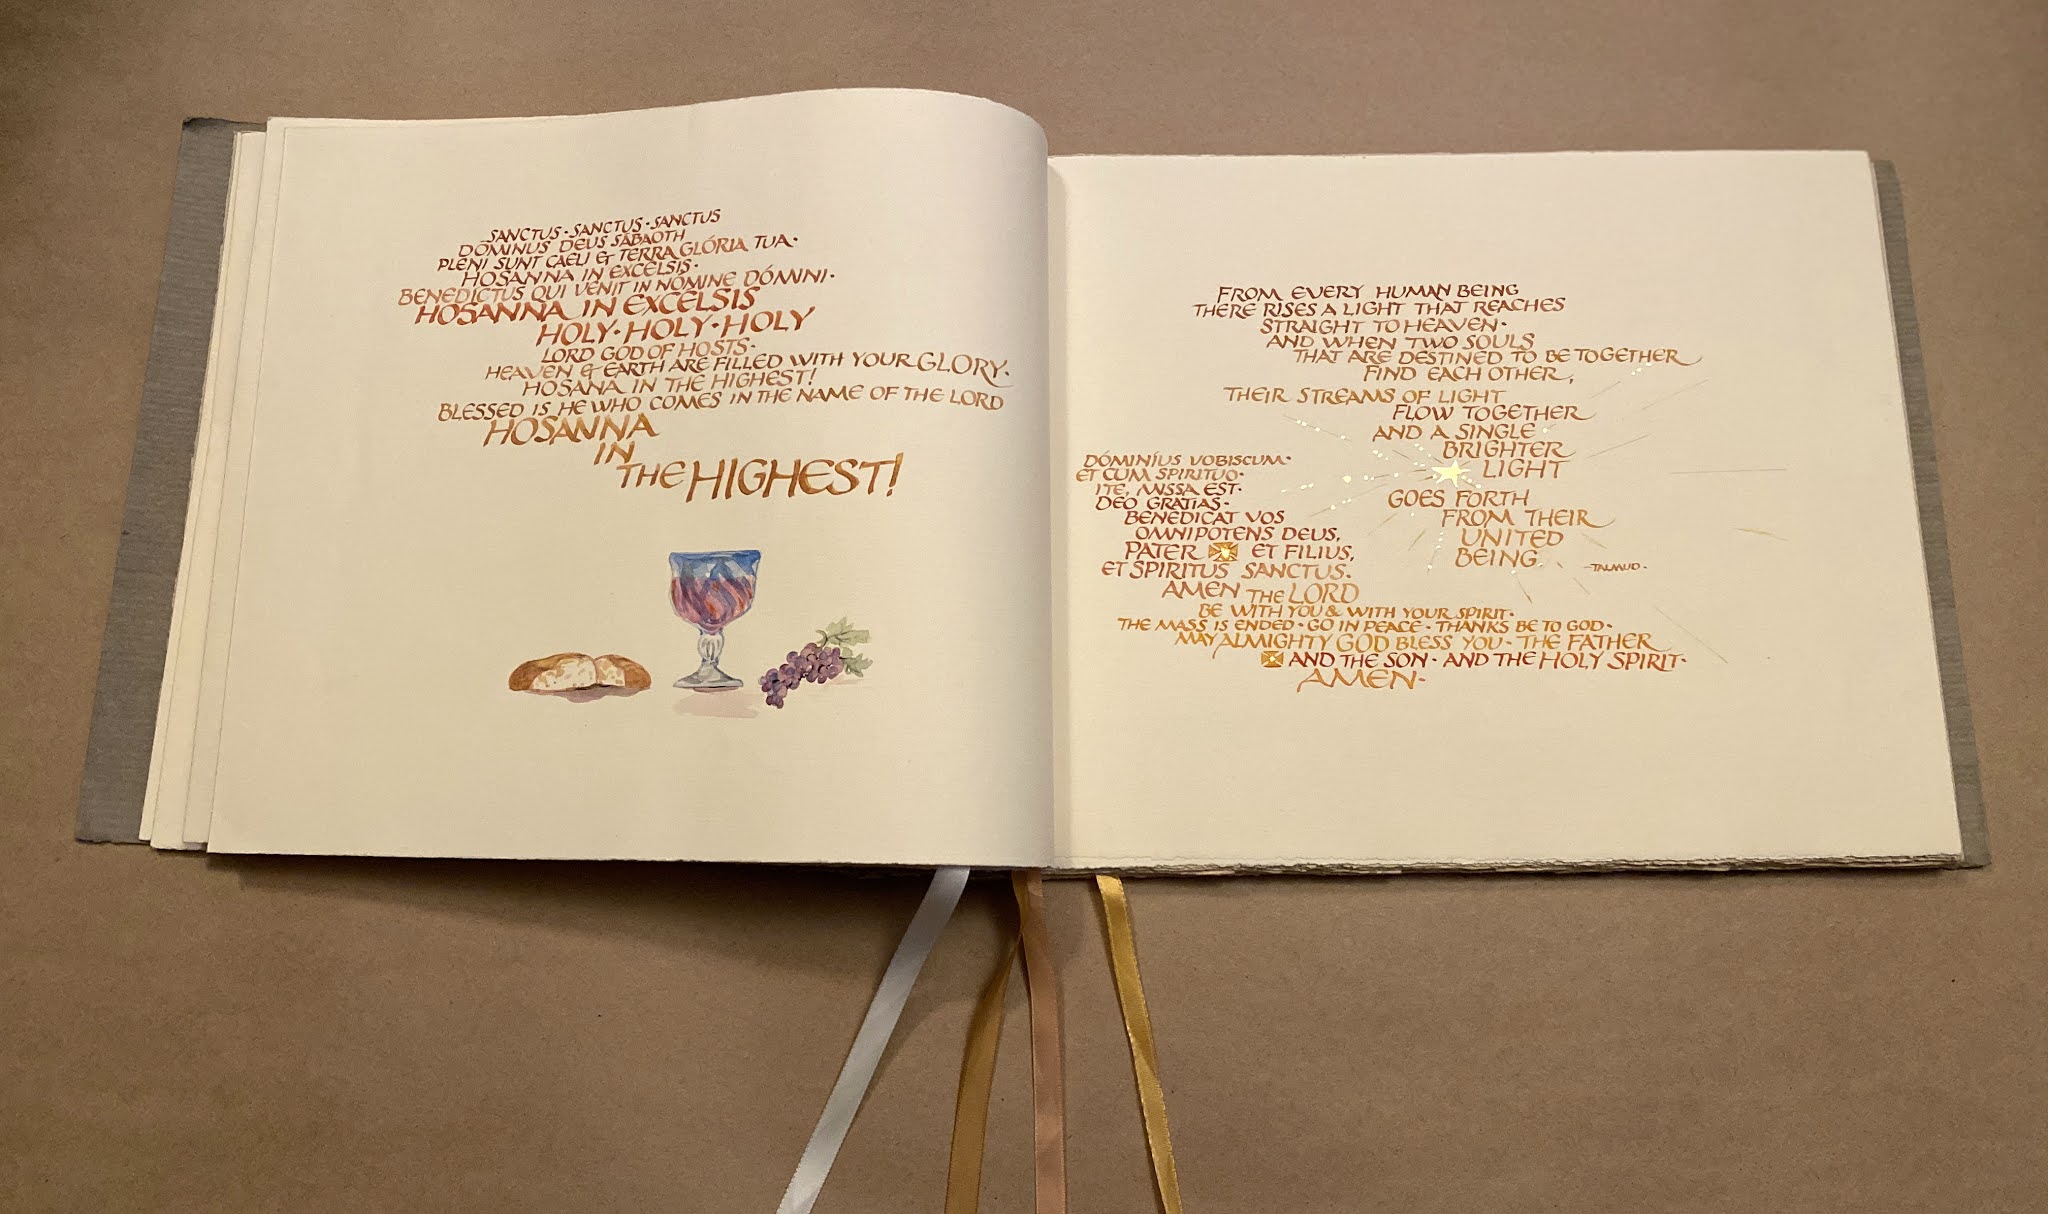 SANCTUS · SANCTUS · SANCTUS
DÓMINUS DEUS SABAOTH
PLENI SUNT CAELI & TERRA GLÓRIA TUA ·
HOSANNA IN EXCELSIS ·
BENEDICTUS QUI VENIT IN NÓMINE DÓMINI ·
HOSANNA IN EXCELSIS
HOLY · HOLY · HOLY
LORD GOD OF HOSTS ·
HEAVEN & EARTH ARE FILLED WITH YOUR GLORY.
HOSANA IN THE HIGHEST!
BLESSED IS HE WHO COMES IN THE NAME OF THE LORD
HOSANNA
IN
THE HIGHEST!
FROM EVERY HUMAN BEING
THERE RISES A LIGHT THAT REACHES
STRAIGHT TO HEAVEN ·
AND WHEN TWO SOULS
THAT ARE DESTINED TO BE TOGETHER
FIND EACH OTHER,
THEIR STREAMS OF LIGHT
FLOW TOGETHER
AND A SINGLE
BRIGHTER
LIGHT
GOES FORTH
FROM THEIR
UNITED
BEING.
-TALMUD ·
DÓMINÍUS VOBISCUM ·
ET CUM SPIRITUO ·
ITE, MISSA EST ·
DEO GRATIAS ·
BENEDICAT VOS
OMNIPOTENS DEUS,
PATER ET FILIUS,
ET SPIRITUS SANCTUS.
AMEN THE LORD
BE WITH YOU & WITH YOUR SPIRIT ·
THE MASS IS ENDED · GO IN PEACE · THANKS BE TO GOD ·
MAY ALMIGHTY GOD BLESS YOU · THE FATHER
AND THE SON · AND THE HOLY SPIRIT ·
AMEN ·